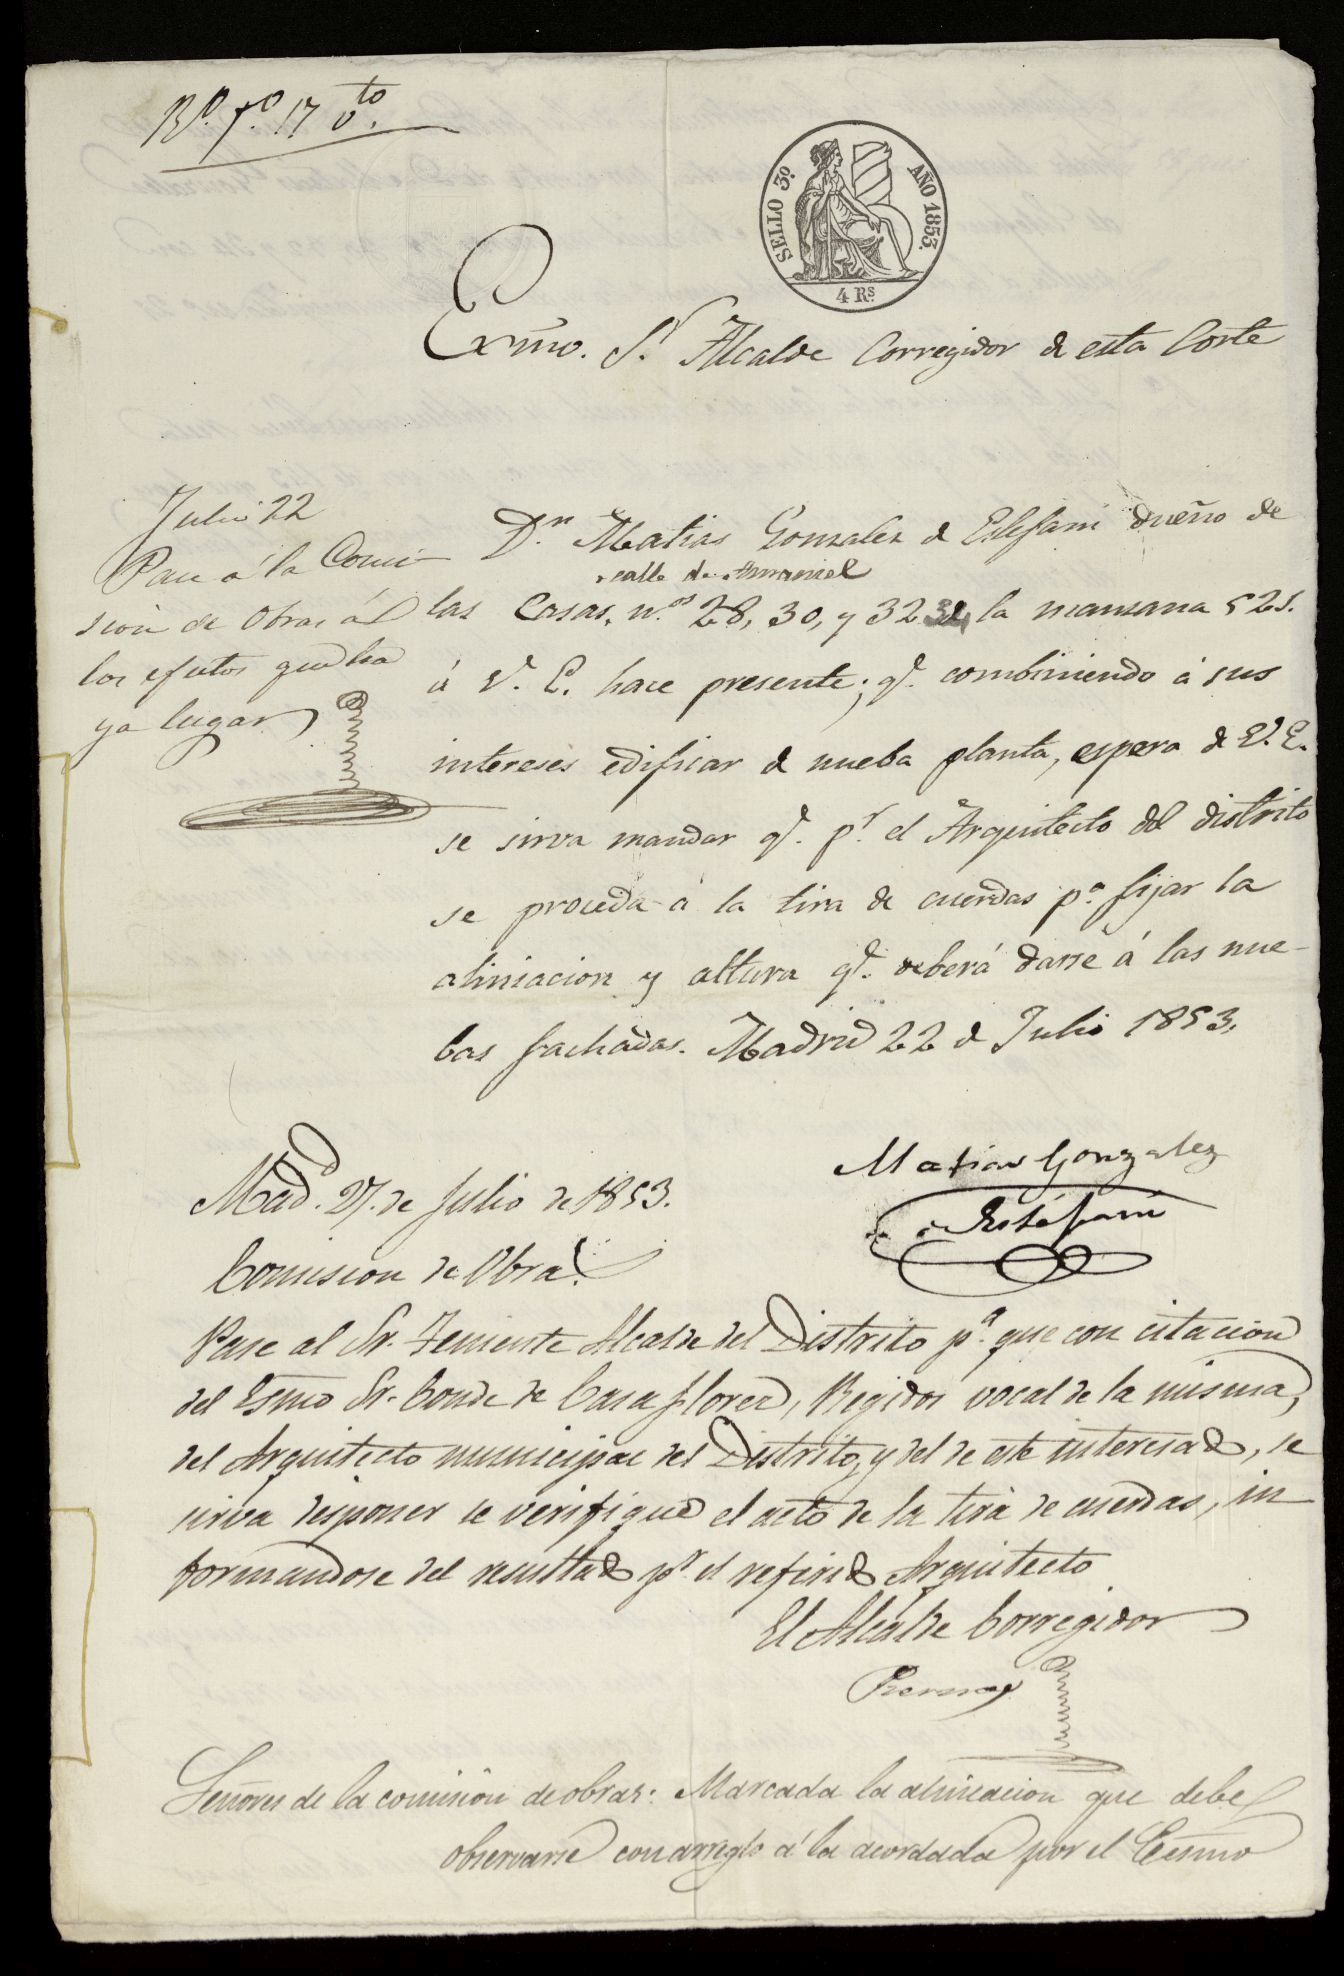 Rº. fº. 17 vto.
SELLO 3º. AÑO 1853.
4 RS.
Exmo. Sr. Alcalde Corregidor de esta Corte
Julio 22
Pase á la Comi-
sion de Obras á
los efectos que ha
ya lugar
Dn. Matias Gonzalez de Estefani dueño de
calle de Amaniel
las Casas, nos. 28, 30, y 32 de la manzana 521.
á V. E. hace presente; qe. combiniendo á sus
intereses edificar de nueba planta, espera de V. E.
se sirva mandar qe. pr. el Arquitecto del distrito
se proceda á la tira de cuerdas pa. fijar la
aliniacion y altura qe. deberá darse á las nue-
bas fachadas. Madrid 22 de Julio 1853.
Matias Gonzalez
de Estéfani
Madd. 27. de Julio de 1853.
Comision de Obras
Pase al Sr. Teniente Alcalde del Distrito pa. que con citacion
del Esmo Sr. Conde de Casa flores, Regidor vocal de la misma,
del Arquitecto municipal del Distrito, y del de este interesado, se
sirva disponer se verifique el acto de la tira de cuerdas, in
formandose del resultado pr. el referido Arquitecto
El Alcalde Corregidor
Señores de la comision de obras: Marcada la alineacion que debe
observarse con arreglo á la acordada por el Ecsmo